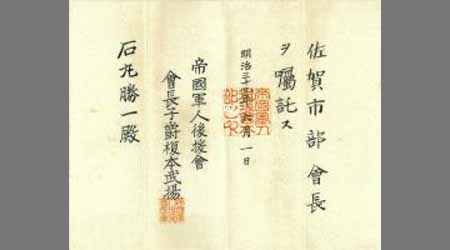 佐賀市部會長
ヲ囑託ス
明治三十
年六月一日
帝國軍人後援會
會長子爵榎本武揚
石丸勝一殿